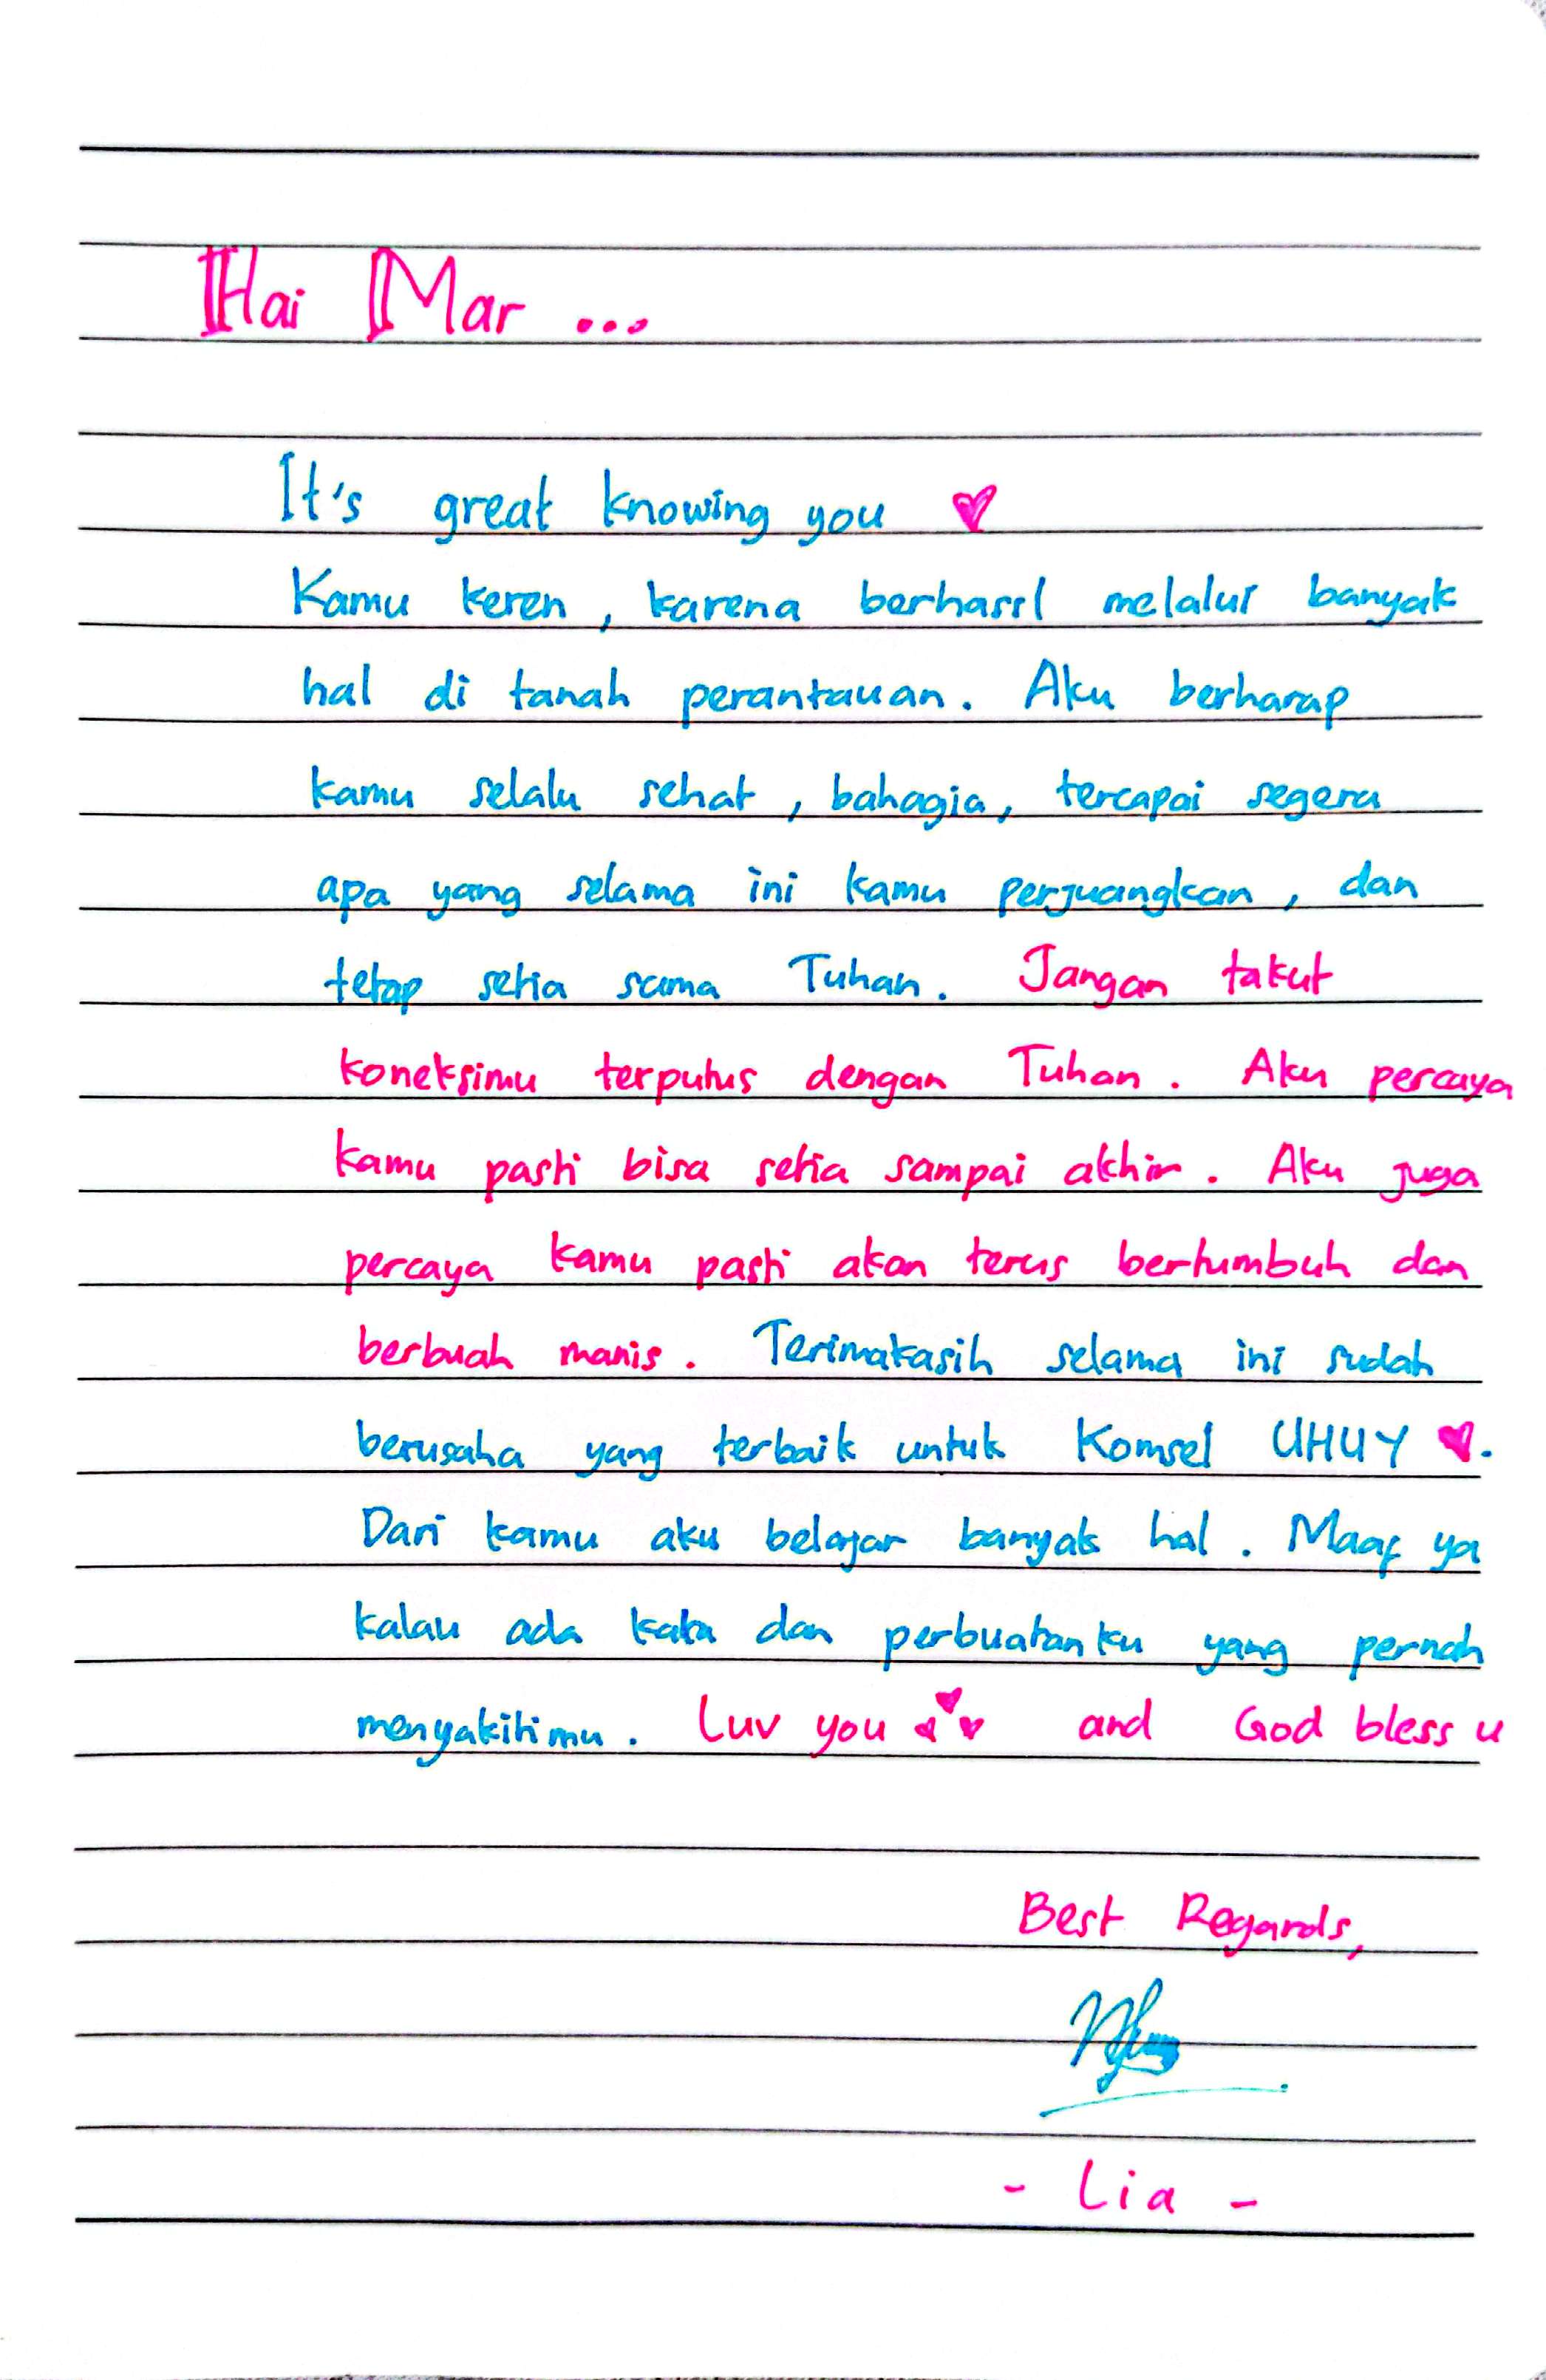 Hai Mar ...
It's great knowing you ♥
Kamu keren, karena berhasil melalui banyak
hal di tanah perantauan. Aku berharap
kamu selalu sehat, bahagia, tercapai segera
apa yang selama ini kamu perjuangkan, dan
tetap setia sama Tuhan. Jangan takut
koneksimu terputus dengan Tuhan. Aku percaya
kamu pasti bisa setia sampai akhir. Aku juga
percaya kamu pasti akan terus bertumbuh dan
berbuah manis. Terimakasih selama ini sudah
berusaha yang terbaik untuk Komsel UHUY ♥.
Dari kamu aku belajar banyak hal. Maaf ya
kalau ada kata dan perbuatanku yang pernah
menyakitimu. Luv you ♥♥♥ and God bless u
Best Regards,
- Lia -